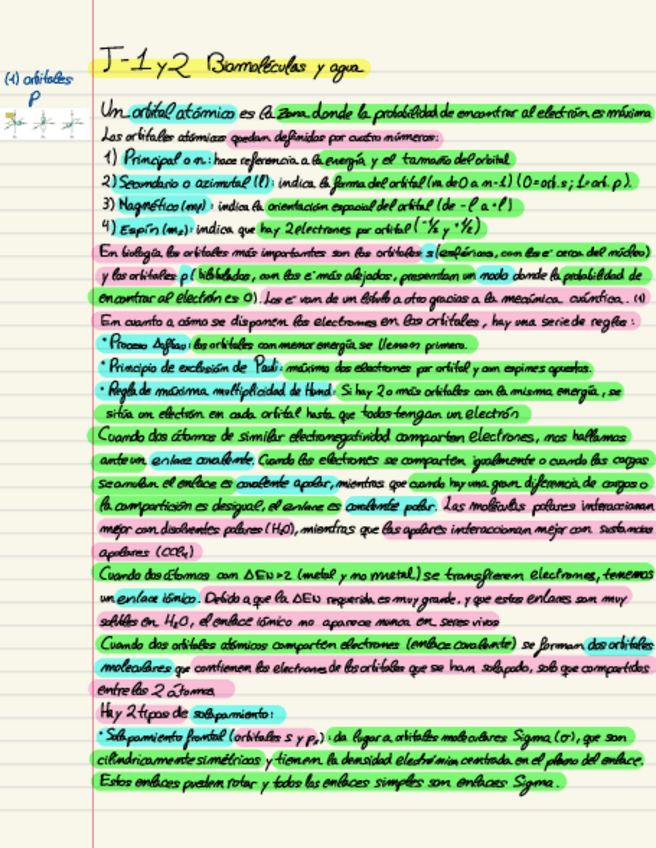 T-1 y 2 Biomoléculas y agua
(1) orbitales
p
Un orbital atómico es la zona donde la probabilidad de encontrar al electrón es máxima
Los orbitales atómicos quedan definidos por cuatro números:
1) Principal o n: hace referencia a la energía y el tamaño del orbital
2) Secundario o azimutal (l): indica la forma del orbital (va de 0 a n-1) (0=orb. s; 1=orb. p).
3) Magnético (ml): indica la orientación espacial del orbital (de -l a +l)
4) Espín (ms): indica que hay 2 electrones por orbital (-1/2 y +1/2)
En biología los orbitales más importantes son los orbitales s (esféricos, con los e⁻ cerca del núcleo)
y los orbitales p (bilobulados, con los e⁻ más alejados, presentan un nodo donde la probabilidad de
encontrar al electrón es 0). Los e⁻ van de un lóbulo a otro gracias a la mecánica cuántica. (1)
En cuanto a cómo se disponen los electrones en los orbitales, hay una serie de reglas:
· Proceso Aufbau: los orbitales con menor energía se llenan primero.
· Principio de exclusión de Pauli: máximo dos electrones por orbital y con espines opuestos.
· Regla de máxima multiplicidad de Hund: Si hay 2 o más orbitales con la misma energía, se
sitúa un electrón en cada orbital hasta que todos tengan un electrón
Cuando dos átomos de similar electronegatividad comparten electrones, nos hallamos
ante un enlace covalente. Cuando los electrones se comparten igualmente o cuando las cargas
se anulan el enlace es covalente apolar, mientras que cuando hay una gran diferencia de cargas o
la compartición es desigual, el enlace es covalente polar. Las moléculas polares interaccionan
mejor con disolventes polares (H₂O), mientras que las apolares interaccionan mejor con sustancias
apolares (CCl₄)
Cuando dos átomos con ΔEN>2 (metal y no metal) se transfieren electrones, tenemos
un enlace iónico. Debido a que la ΔEN requerida es muy grande, y que estos enlaces son muy
solubles en H₂O, el enlace iónico no aparece nunca en seres vivos
Cuando dos orbitales atómicos comparten electrones (enlace covalente) se forman dos orbitales
moleculares que contienen los electrones de los orbitales que se han solapado, solo que compartidos
entre los 2 átomos
Hay 2 tipos de solapamiento:
· Solapamiento frontal (orbitales s y pₓ): da lugar a orbitales moleculares Sigma (σ), que son
cilíndricamente simétricos y tienen la densidad electrónica centrada en el plano del enlace.
Estos enlaces pueden rotar y todos los enlaces simples son enlaces Sigma.